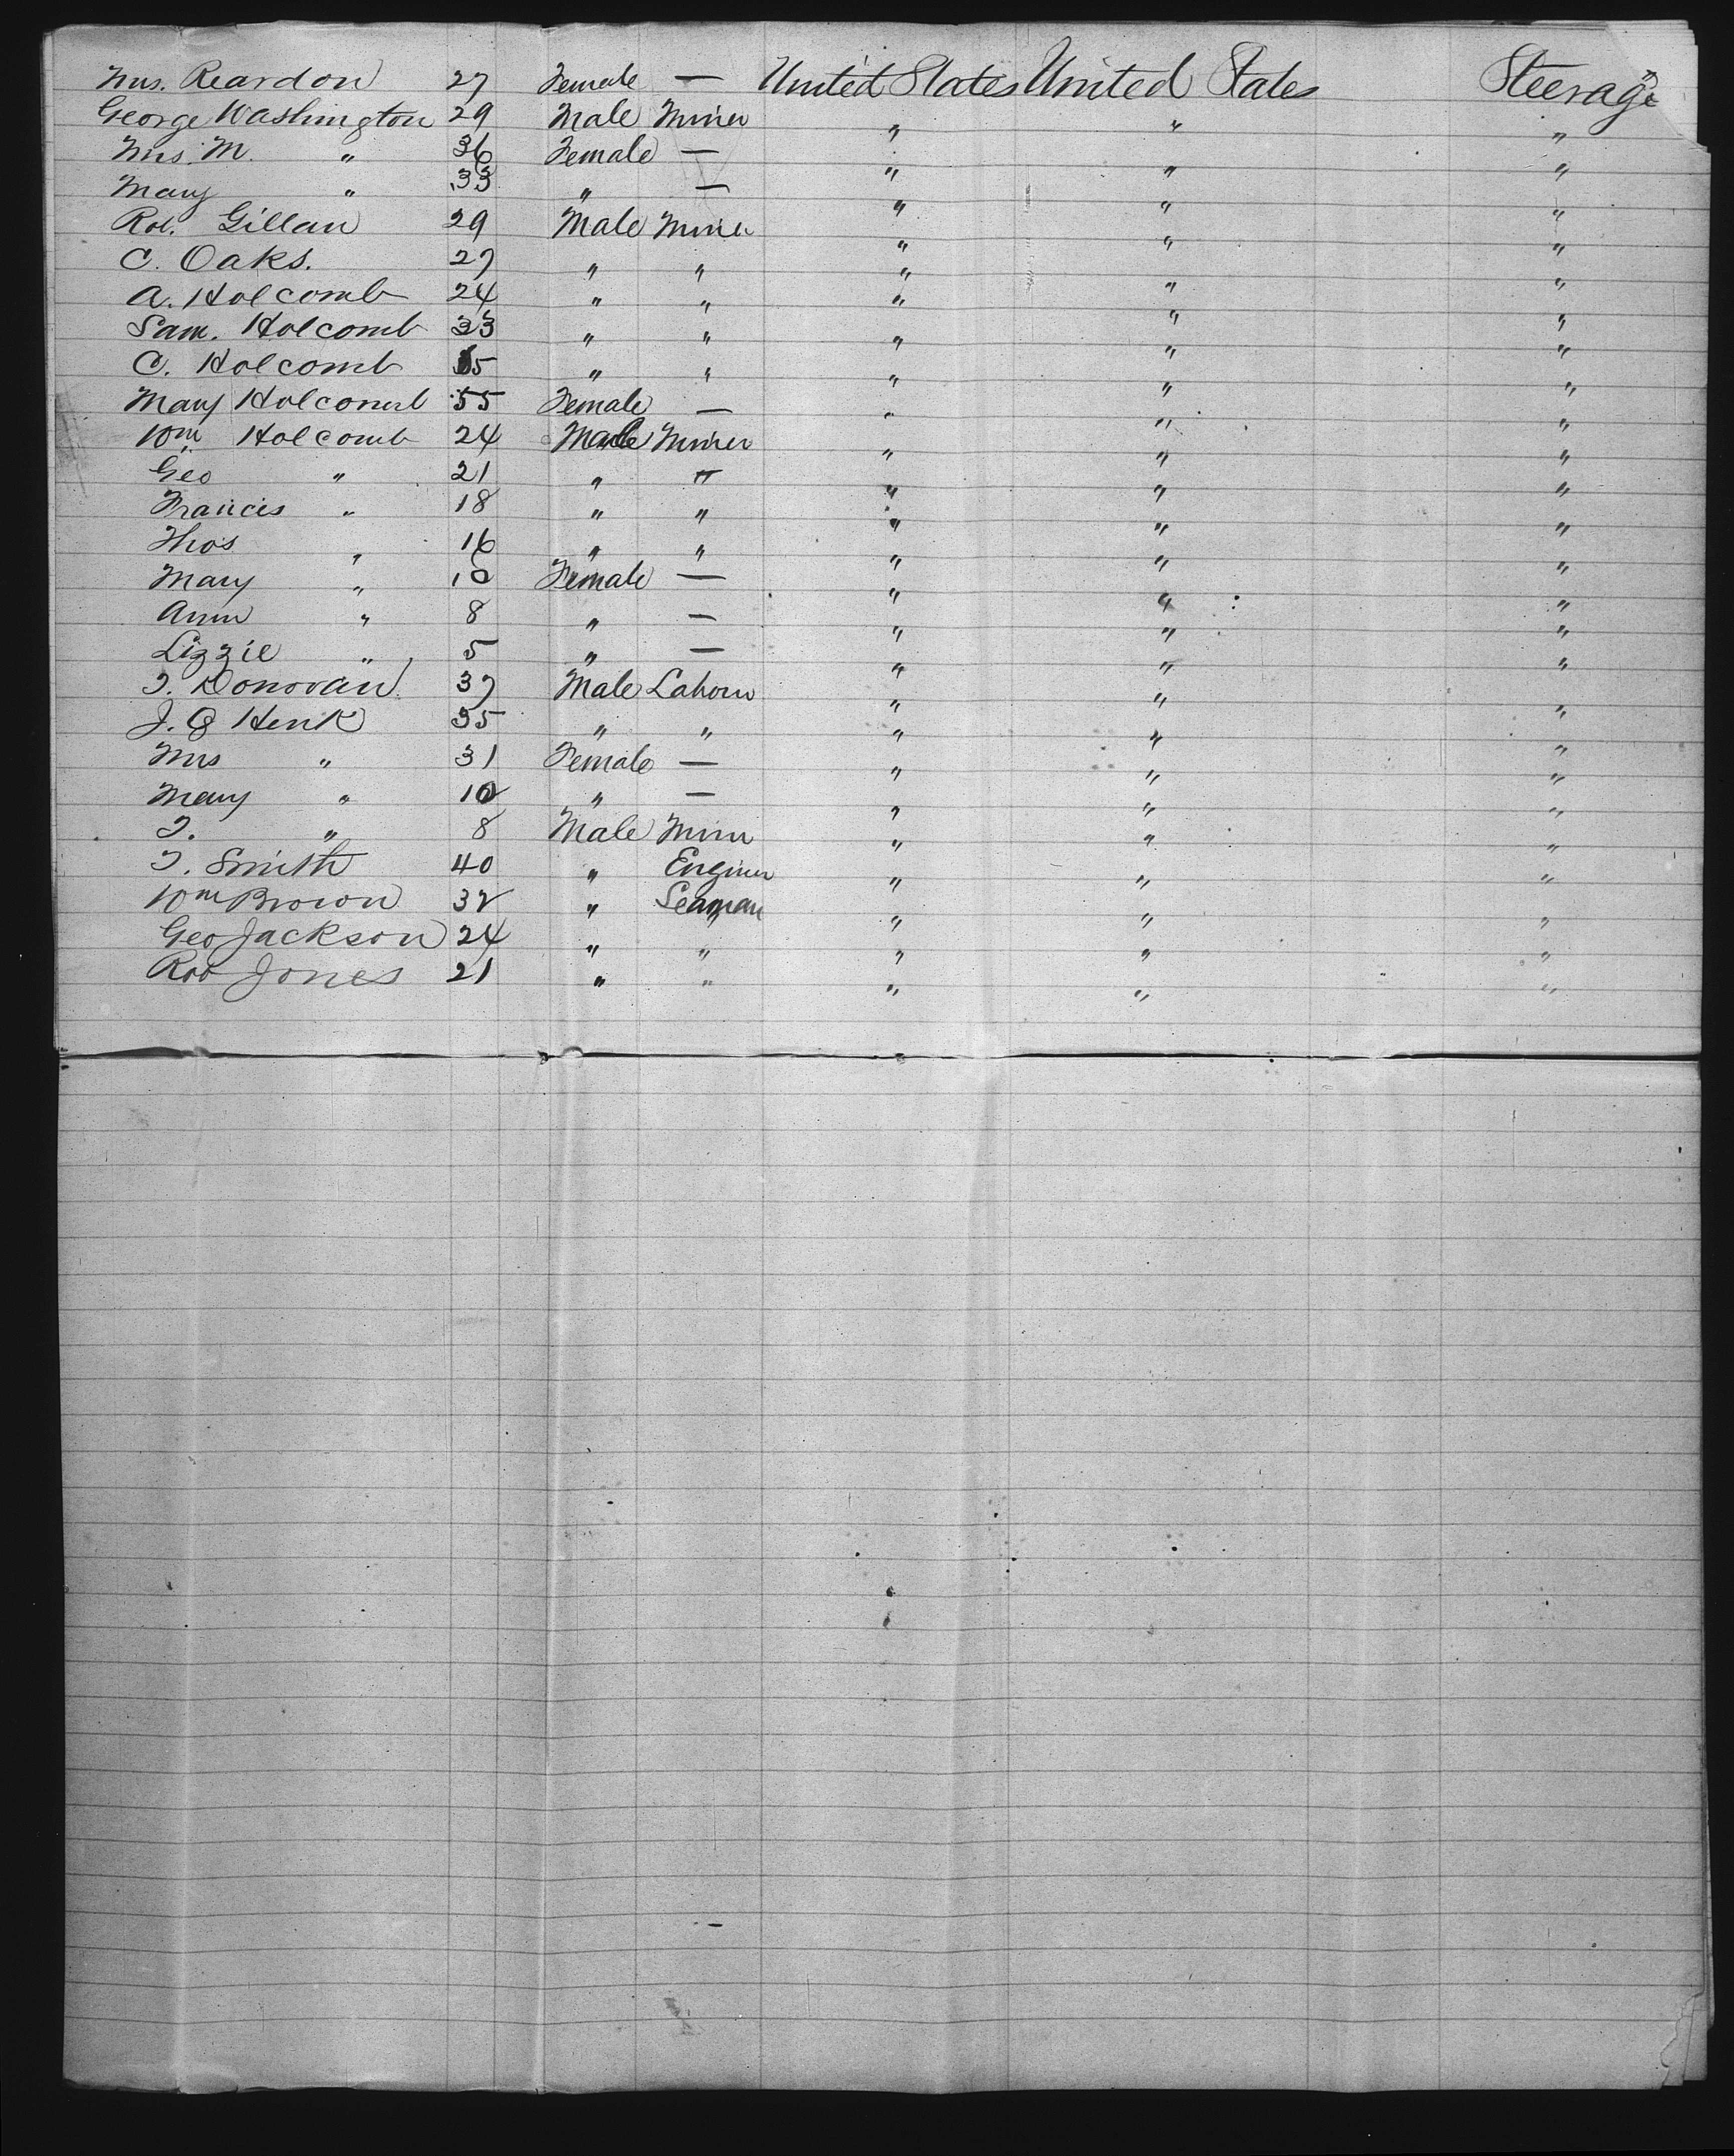 Mrs. Reardon 27 Female — United States United States Steerage
George Washington 29 Male Miner " " "
Mrs. M. " 36 Female — " " "
Mary " 33 " — " " "
Rob. Gillan 29 Male Miner " " "
C. Oaks. 27 " " " " "
A. Holcomb 24 " " " " "
Sam. Holcomb 33 " " " " "
C. Holcomb 55 " " " " "
Mary Holcomb 55 Female — " " "
Wm Holcomb 24 Male Miner " " "
Geo " 21 " " " " "
Francis " 18 " " " " "
Thos " 16 " " " " "
Mary " 10 Female — " " "
Ann " 8 " — " " "
Lizzie " 5 " — " " "
T. Donovan 37 Male Labour " " "
J. G Henk 35 " " " " "
Mrs " 31 Female — " " "
Mary " 10 " — " " "
T. " 8 Male Miner " " "
T. Smith 40 " Engineer " " "
Wm Brown 32 " Seaman " " "
Geo Jackson 24 " " " " "
Rob Jones 21 " " " " "